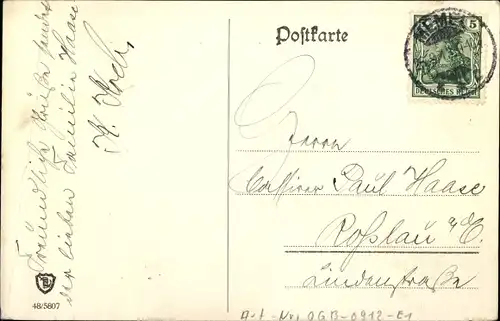 Freundliche Grüße sendet
der lieben Familie Haase
K. Koch.
48/5807
Postkarte
5
DEUTSCHES REICH
Herrn
Cassierer Paul Haase
Roßlau a/E.
Lindenstraße
A-t-Nr. OGB-0912-E1